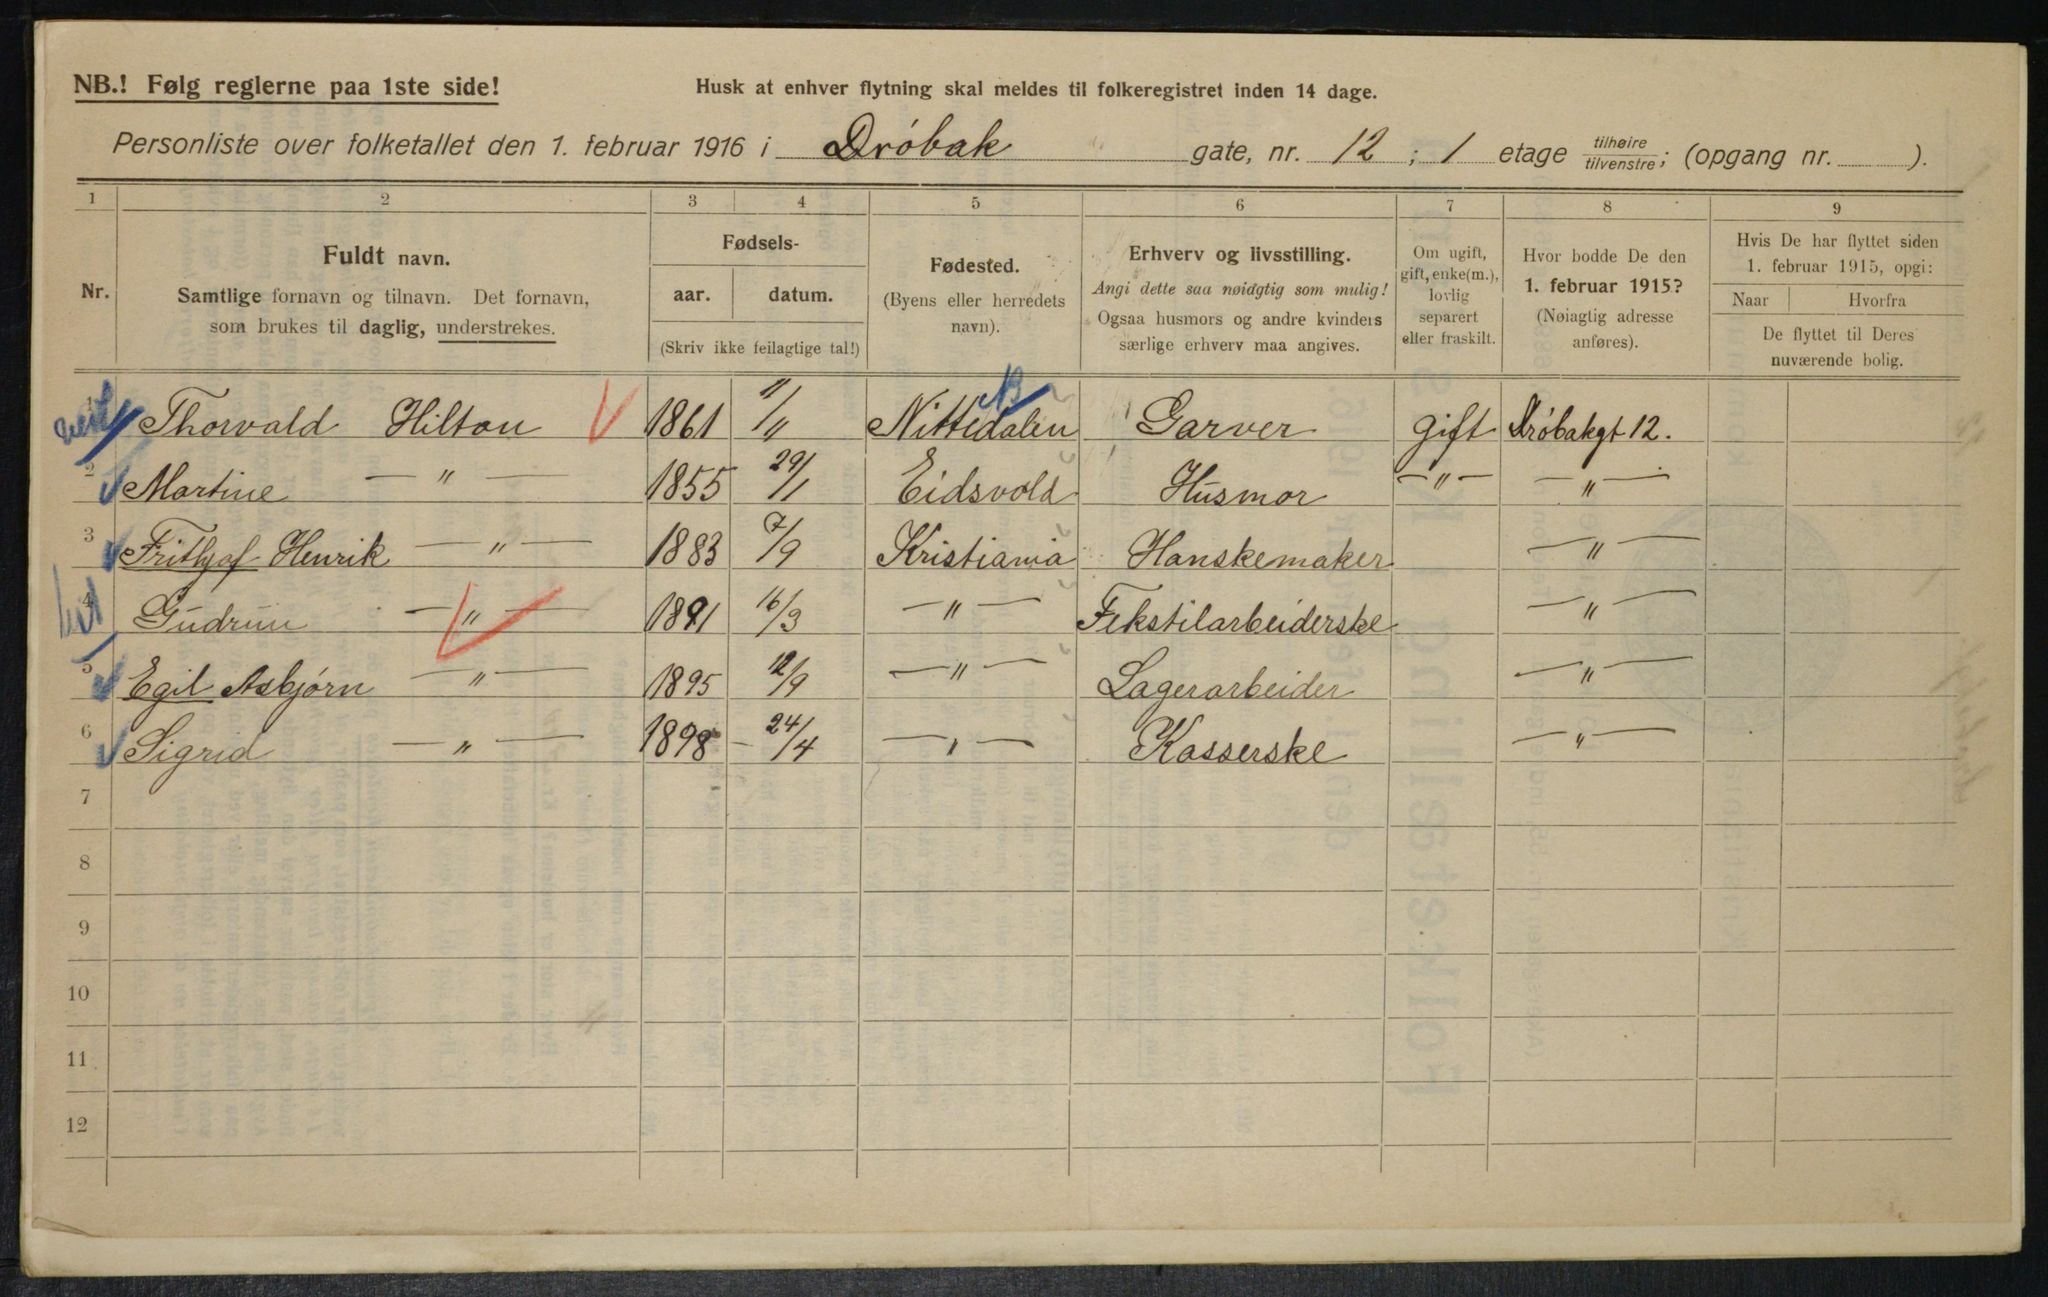 NB.! Følg reglerne paa 1ste side!
Husk at enhver flytning skal meldes til folkeregistret inden 14 dage.
Personliste over folketallet den 1. februar 1916 i Drøbak gate, nr. 12 ; 1 etage tilhøire/tilvenstre; (opgang nr. ).
1 2 3 4 5 6 7 8 9
Nr.
Fuldt navn.
Samtlige fornavn og tilnavn. Det fornavn,
som brukes til daglig, understrekes.
Fødsels-
aar. datum.
(Skriv ikke feilagtige tal!)
Fødested.
(Byens eller herredets
navn).
Erhverv og livsstilling.
Angi dette saa nøiagtig som mulig!
Ogsaa husmors og andre kvinders
særlige erhverv maa angives.
Om ugift,
gift, enke(m.),
lovlig
separert
eller fraskilt.
Hvor bodde De den
1. februar 1915?
(Nøiagtig adresse
anføres).
Hvis De har flyttet siden
1. februar 1915, opgi:
Naar Hvorfra
De flyttet til Deres
nuværende bolig.
1 Thorvald Hilton 1861 11/11 Nittedalen Garver gift Drøbakgt 12.
2 Martine — " — 1855 29/1 Eidsvold Husmor — " — — " —
3 Frithjof Henrik — " — 1883 7/9 Kristiania Hanskemaker — " —
4 Gudrun — " — 1891 16/3 — " — Tekstilarbeiderske — " —
5 Egil Asbjørn — " — 1895 12/9 — " — Lagerarbeider — " —
6 Sigrid — " — 1898 – 24/4 — " — Kasserske — " —
7
8
9
10
11
12